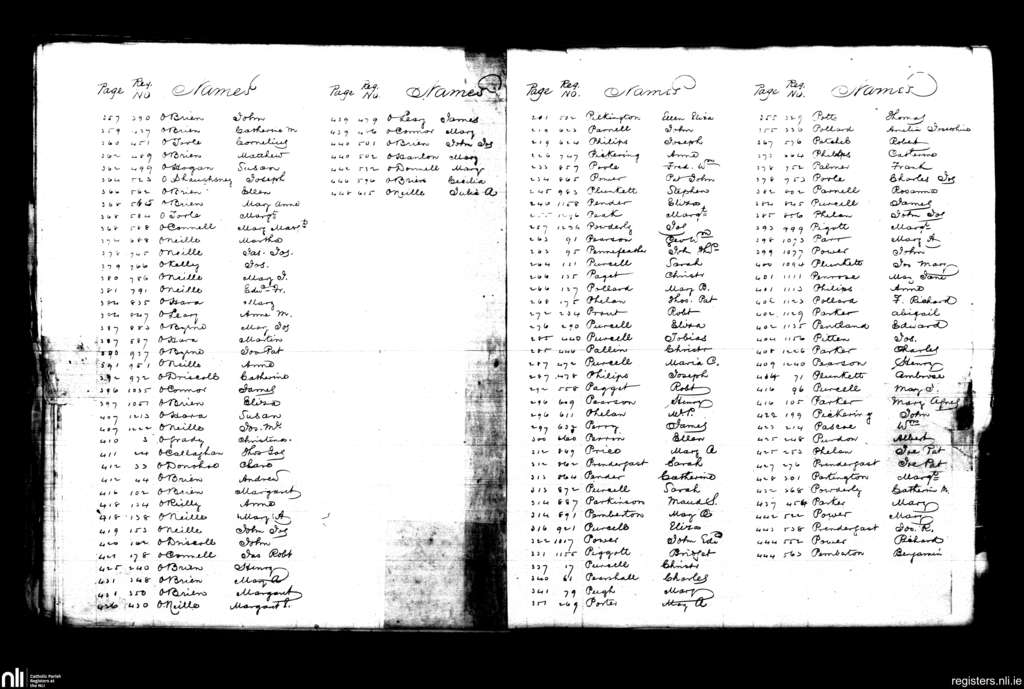 Page Reg. No. Names
357 390 O'Brien John
359 437 O'Brien Catherine M
360 451 O'Toole Cornelius
362 459 O'Brien Matthew
362 499 O'Hogan Susan
364 523 O'Shaughnessy Joseph
366 562 O'Brien Ellen
368 565 O'Brien Mary Anne
368 584 O'Toole Margt
368 588 O'Connell Mary Margt
374 688 O'Neille Martha
378 745 O'Neille Jas. Jos.
379 766 O'Kelley Jos.
380 786 O'Neille Mary J.
381 791 O'Neille Edwd Fr.
384 835 O'Hara Mary
386 867 O'Leary Anne M.
387 883 O'Byrne Mary Jos
387 887 O'Hara Martin
390 937 O'Byrne Jos Pat
391 951 O'Neille Anne
392 972 O'Driscoll Catherine
396 1035 O'Connor James
397 1051 O'Brien Eliza
407 1213 O'Hara Susan
407 1222 O'Neille Jos. Mk.
410 3 O'Grady Christina
411 24 O'Callaghan Thos Jos
412 33 O'Donohoe Clare
412 44 O'Brien Andrew
416 102 O'Brien Margaret
418 134 O'Reilly Anne
418 138 O'Neille Mary A
419 153 O'Neille John Jos
420 162 O'Driscoll John
421 178 O'Connell Jas Robt
425 240 O'Brien Henry
431 348 O'Brien Mary A
431 350 O'Brien Margaret
436 430 O'Neille Margaret S.
Page Reg. No. Names
439 479 O'Leary James
439 476 O'Connor Mary
440 501 O'Brien John Jos
440 502 O'Hanlon Mary
442 532 O'Donnell Mary
446 596 O'Brien Cecilia
448 615 O'Neille Julia A
Page Reg. No. Names
201 512 Pilkington Ellen Eliza
219 623 Parnell John
219 624 Philips Joseph
226 747 Pickering Anne
233 857 Poole Fred. Wm
234 865 Power Pat John
245 983 Plunkett Stephen
240 1158 Pender Eliza
1296 Peak Margt
257 1296 Powderly Jos
263 91 Pearson Geo Wm
263 95 Pennefeather Jos Thos
264 111 Purcell Sarah
266 135 Paget Christr
266 137 Pollard Mary B.
268 175 Phelan Thos. Pat
272 234 Prout Robt
276 290 Purcell Eliza
285 440 Purcell Tobias
285 440 Pallin Christr
287 472 Purcell Maria C.
287 478 Philips Joseph
292 558 Pagget Robt
296 609 Pearson Henry
296 611 Phelan
297 632 Perry James
300 660 Perrin Ellen
312 849 Price Mary A
312 862 Prendergast Sarah
313 864 Pender Catherine
313 872 Purcell Sarah
314 887 Parkinson Maud S.
314 891 Pemberton Mary B
316 921 Purcell Eliza
322 1017 Power John Edwd
331 1155 Piggott Bridget
337 17 Purcell Christr
340 61 Pearshall Charles
341 79 Pugh Mary
351 269 Porter Mary A
Page Reg. No. Names
355 329 Potts Thomas
355 336 Pollard Amelia Josephine
367 576 Robert
373 664 Philips Catherine
378 752 Palmer Frank
378 753 Poole Charles Jos
382 802 Parnell Rosanna
384 845 Purcell James
385 856 Phelan John Jos
393 999 Pigott Margt
398 1073 Parr Mary A
399 1077 Power John
400 1094 Plunkett Jos Mary
401 1111 Penrose May Jane
401 1113 Philips Anne
402 1123 Pollard F. Richard
402 1129 Parker Abigail
402 1135 Pentland Edward
404 1156 Pitten Jos.
408 1226 Parker Charles
409 1240 Pearson Henry
414 71 Plunkett Ambrose
416 96 Purcell Mary J.
416 105 Parker Mary Agnes
422 199 Pickering John
423 214 Pascoe Wm
425 248 Purdon Albert
425 253 Phelan Jos Pat
427 276 Prendergast Jos Pat
428 301 Partington Margt
432 368 Powderly Catherine A.
437 454 Parker Mary
442 522 Power Mary
443 538 Prendergast Jos. R.
444 552 Power Richard
444 563 Pemberton Benjamin
nli Catholic Parish Registers at the NLI
registers.nli.ie